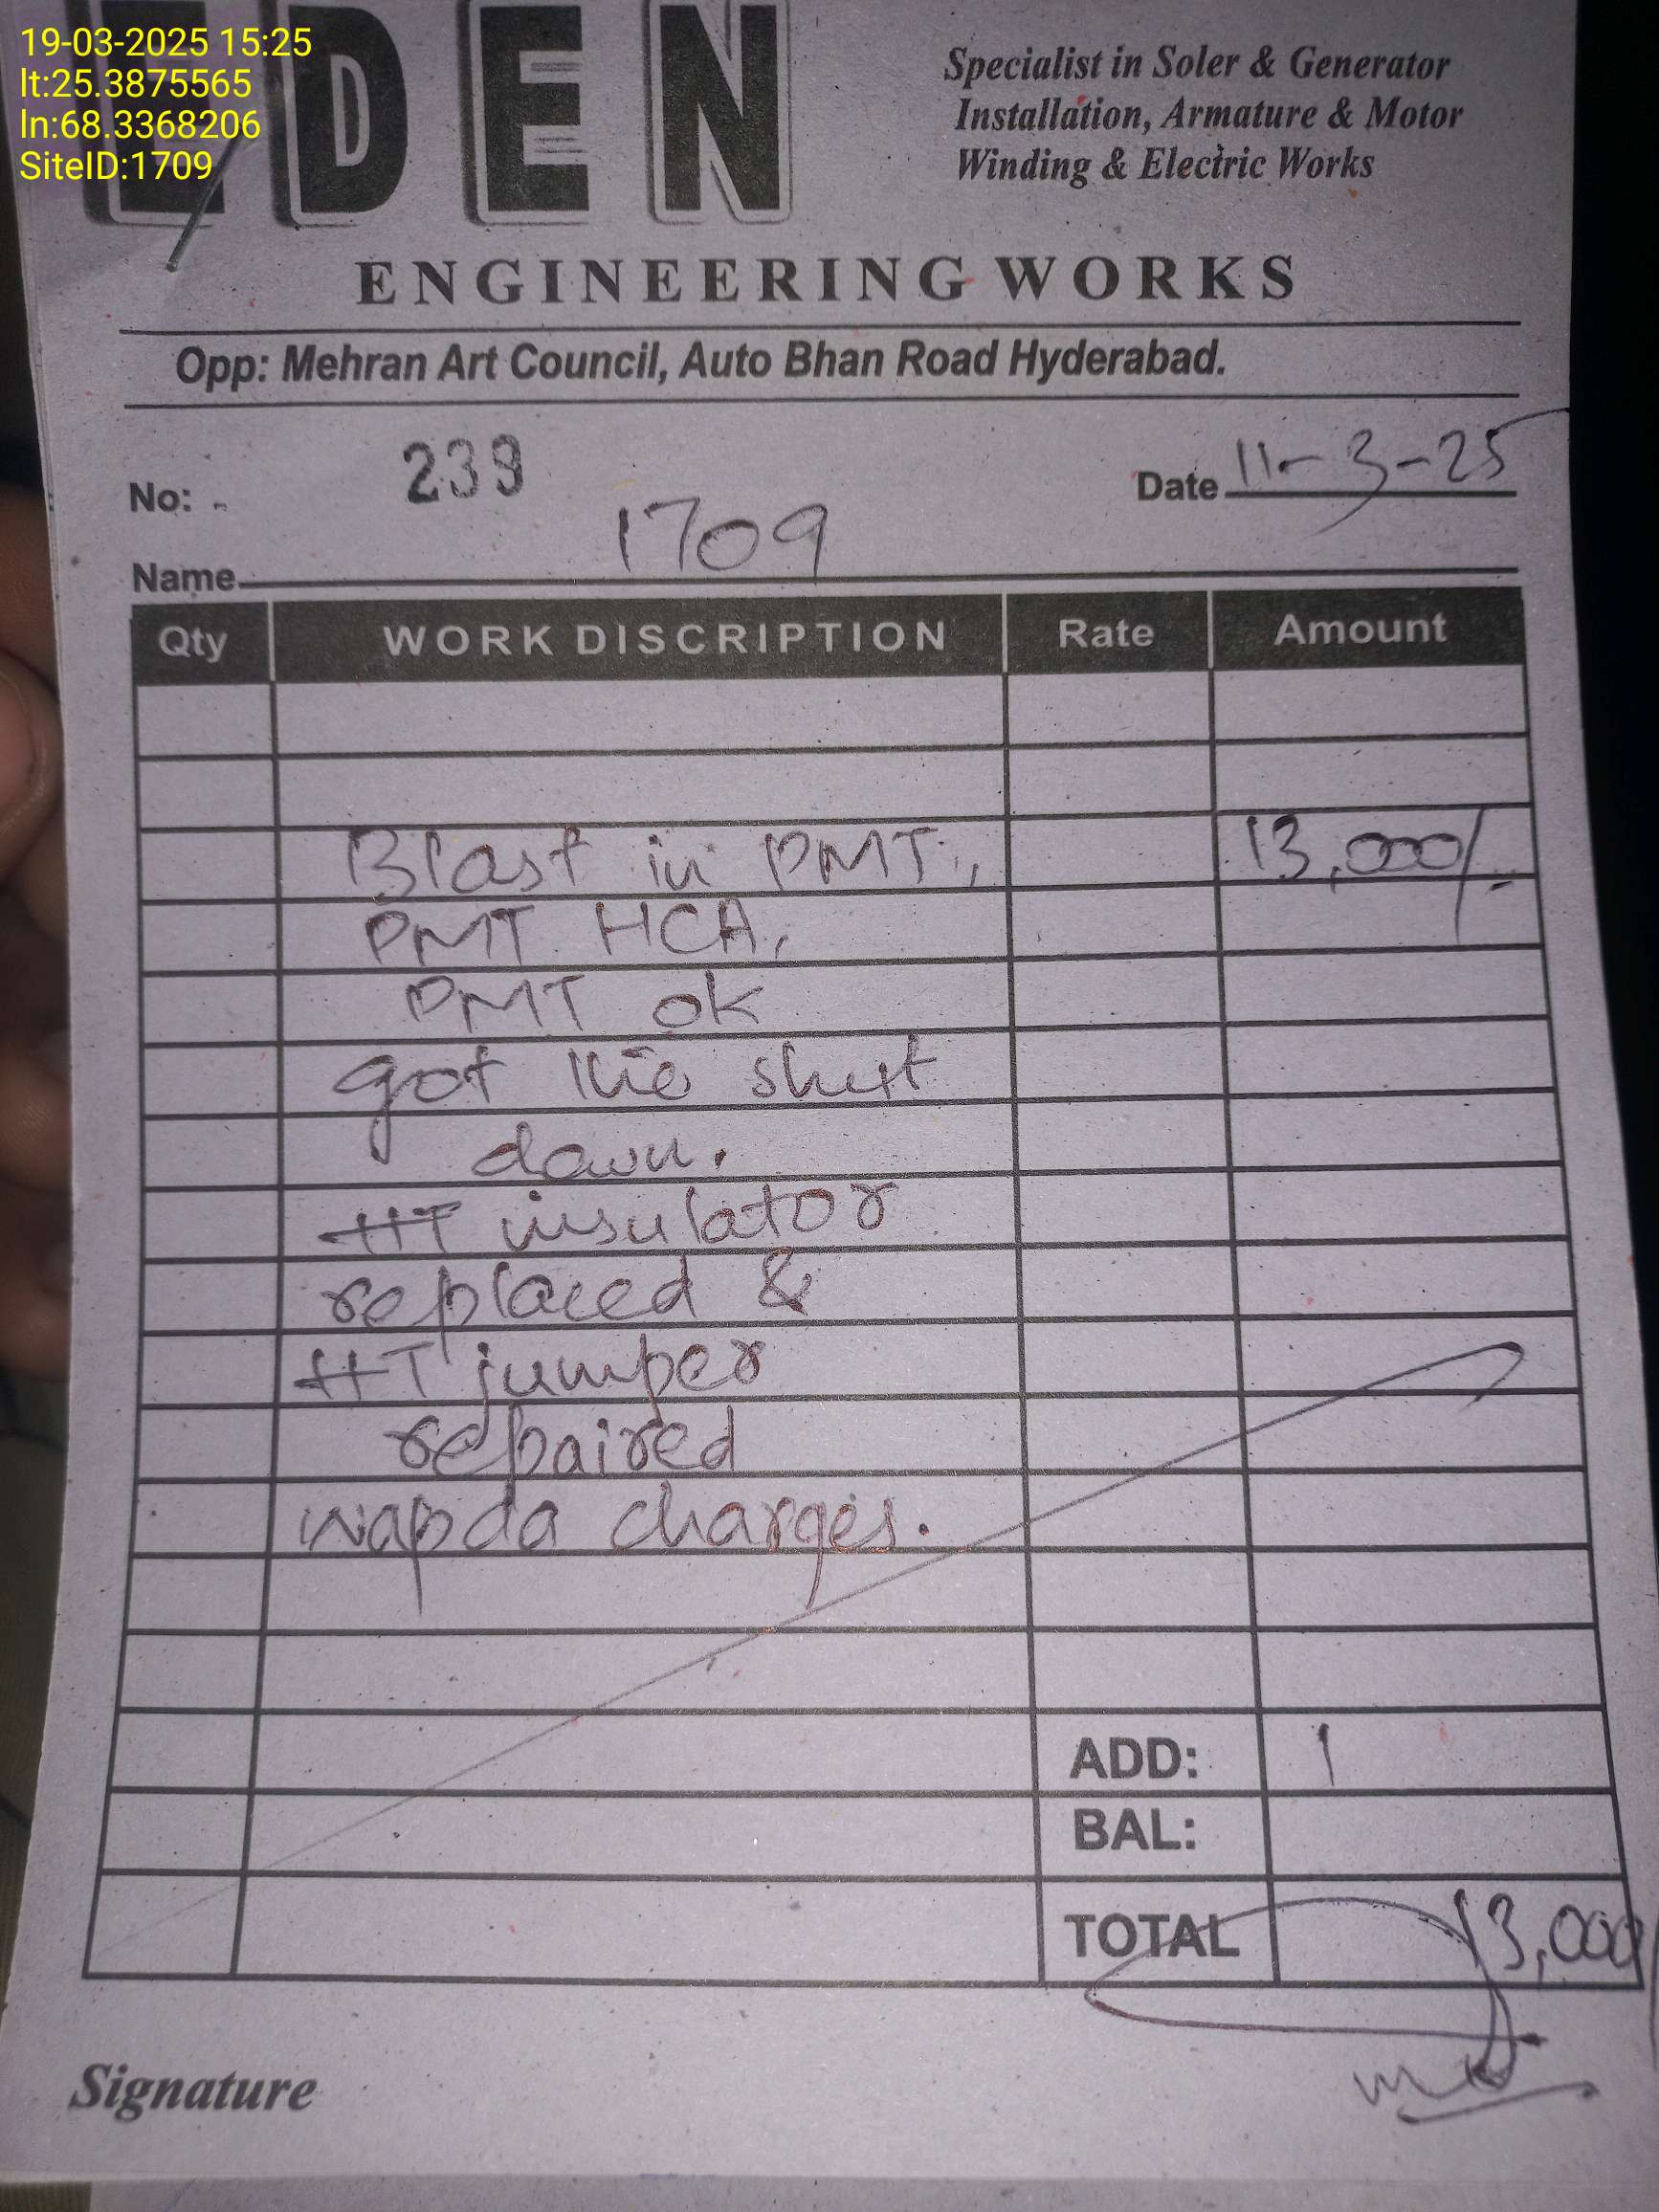 19-03-2025 15:25
lt:25.3875565
ln:68.3368206
SiteID:1709
EDEN
Specialist in Soler & Generator
Installation, Armature & Motor
Winding & Electric Works
ENGINEERING WORKS
Opp: Mehran Art Council, Auto Bhan Road Hyderabad.
No: 239 Date 11-3-25
Name 1709
Qty WORK DISCRIPTION Rate Amount
Blast in PMT, 13,000/-
PMT HCA,
PMT ok
got the shut
down.
HT insulator
replaced &
HT jumper
repaired
wapda charges.
ADD:
BAL:
TOTAL 13,000/
Signature